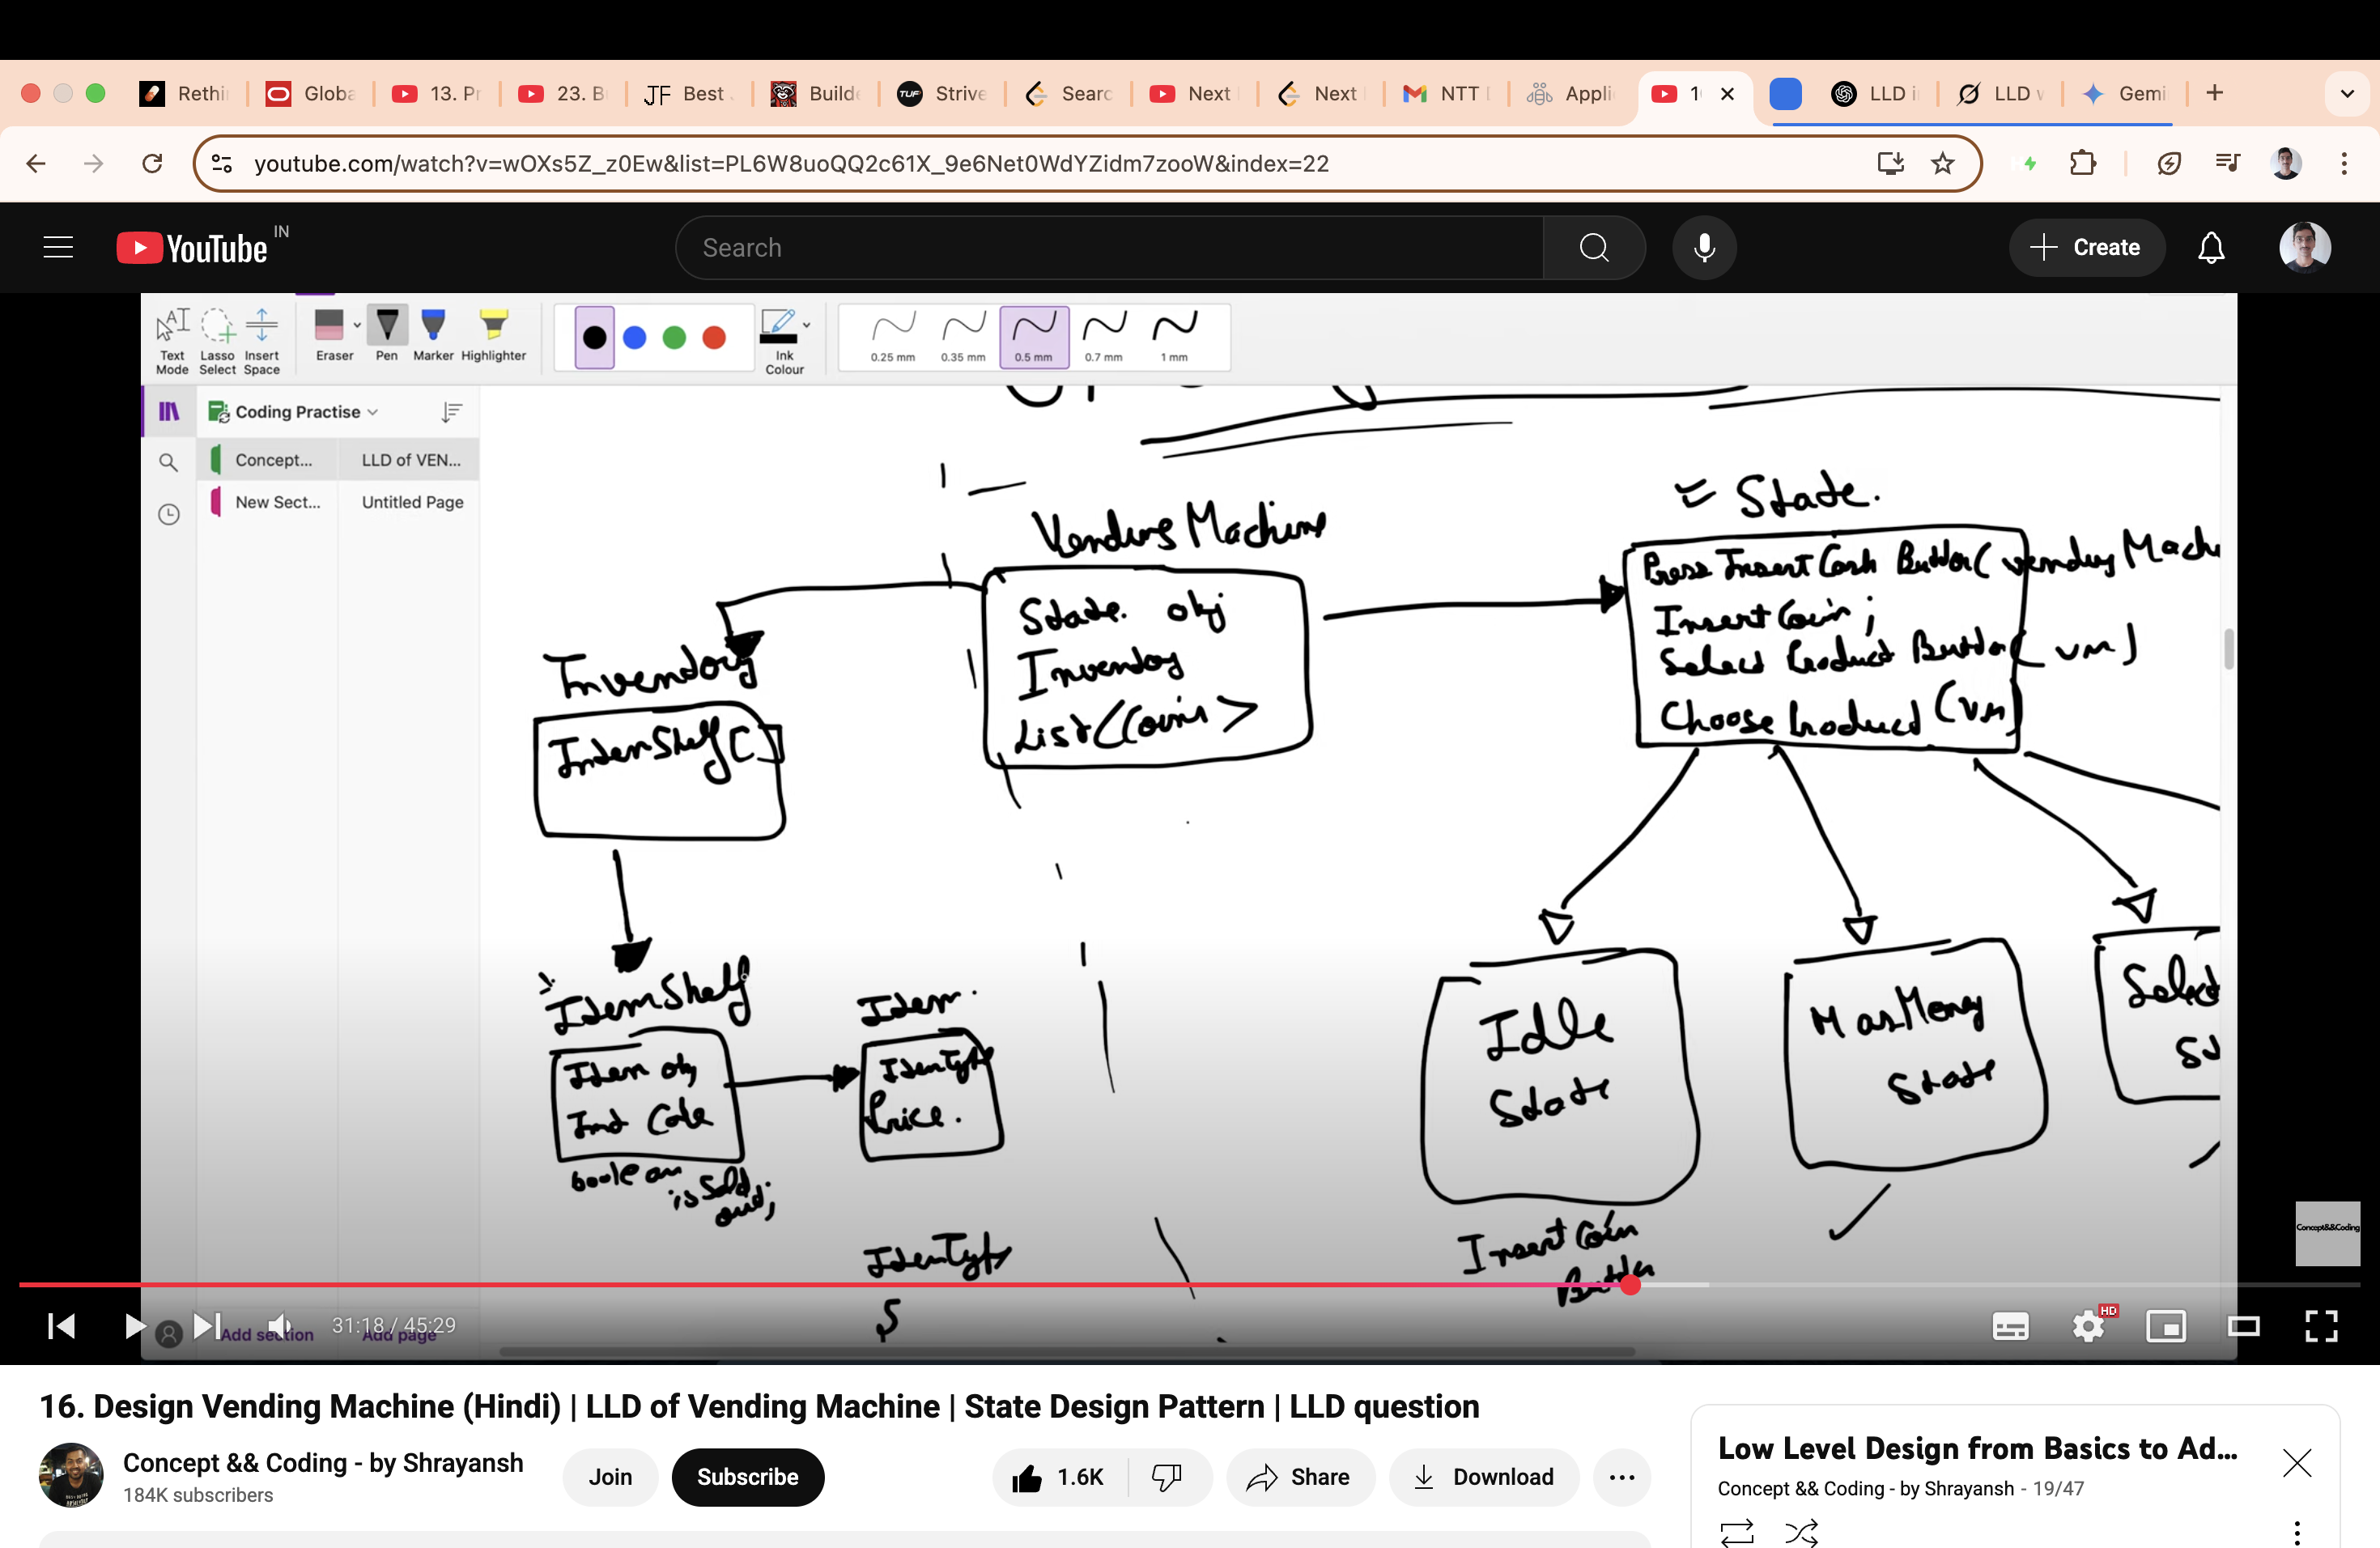 Rethi
Globa
13. Pr
23. B
JF Best
Builde
TUF Strive
Searc
Next
Next
NTT
Appli
LLD i
LLD v
Gemi
youtube.com/watch?v=wOXs5Z_z0Ew&list=PL6W8uoQQ2c61X_9e6Net0WdYZidm7zooW&index=22
YouTube IN
Search
Create
Text Mode
Lasso Select
Insert Space
Eraser
Pen
Marker
Highlighter
Ink Colour
0.25 mm
0.35 mm
0.5 mm
0.7 mm
1 mm
Coding Practise
Concept...
LLD of VEN...
New Sect...
Untitled Page
Vending Machine
State obj
Inventory
List<Coins>
State.
Press Insert Cash Button(vendingMach
Insert Coin;
Select Product Button(vm)
Choose Product(vm)
Inventory
ItemShelf[]
ItemShelf
Item obj
Int Code
boolean
isSold
out;
Item.
ItemType
Price.
ItemType
Idle
State
HasMoney
State
Select
St
Insert Coin
Button
Concept&&Coding
Add section
Add page
31:18 / 45:29
HD
16. Design Vending Machine (Hindi) | LLD of Vending Machine | State Design Pattern | LLD question
Concept && Coding - by Shrayansh
184K subscribers
Join
Subscribe
1.6K
Share
Download
Low Level Design from Basics to Ad...
Concept && Coding - by Shrayansh - 19/47